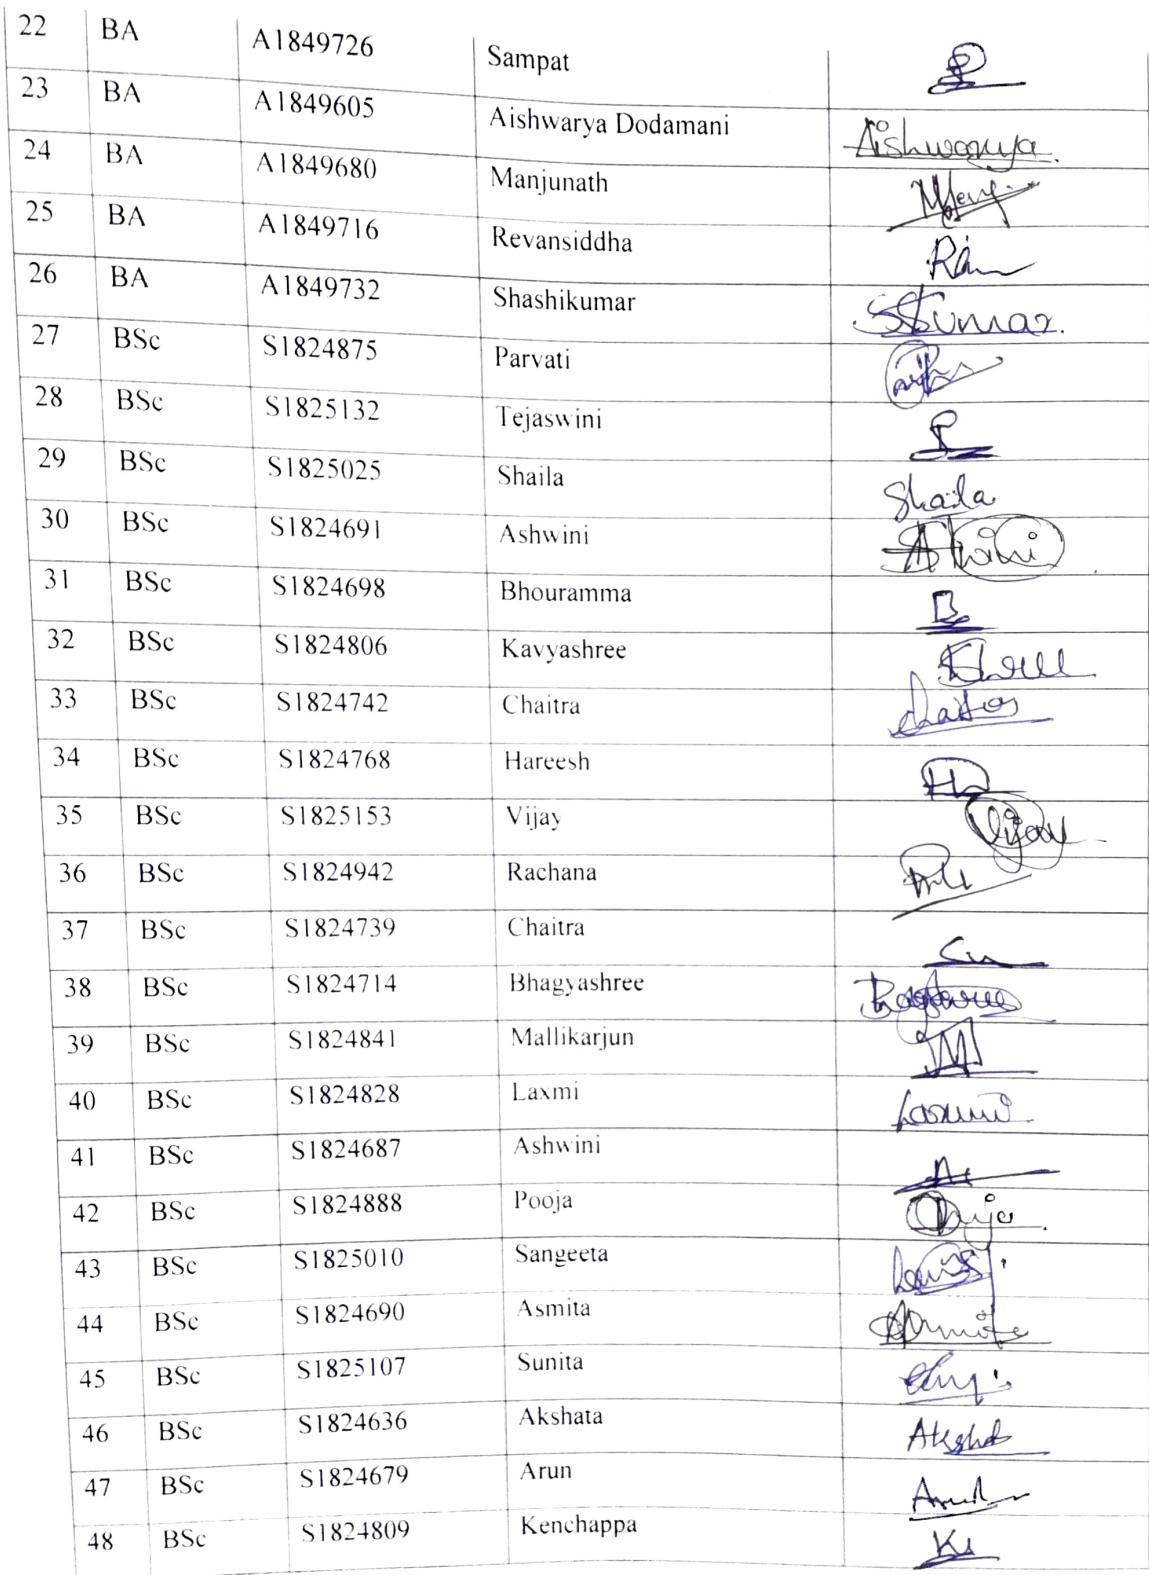 22 BA A1849726 Sampat
23 BA A1849605 Aishwarya Dodamani Aishwarya
24 BA A1849680 Manjunath
25 BA A1849716 Revansiddha
26 BA A1849732 Shashikumar
27 BSc S1824875 Parvati
28 BSc S1825132 Tejaswini
29 BSc S1825025 Shaila Shaila
30 BSc S1824691 Ashwini
31 BSc S1824698 Bhouramma
32 BSc S1824806 Kavyashree
33 BSc S1824742 Chaitra
34 BSc S1824768 Hareesh
35 BSc S1825153 Vijay Vijay
36 BSc S1824942 Rachana
37 BSc S1824739 Chaitra
38 BSc S1824714 Bhagyashree
39 BSc S1824841 Mallikarjun
40 BSc S1824828 Laxmi
41 BSc S1824687 Ashwini
42 BSc S1824888 Pooja
43 BSc S1825010 Sangeeta
44 BSc S1824690 Asmita
45 BSc S1825107 Sunita
46 BSc S1824636 Akshata
47 BSc S1824679 Arun
48 BSc S1824809 Kenchappa